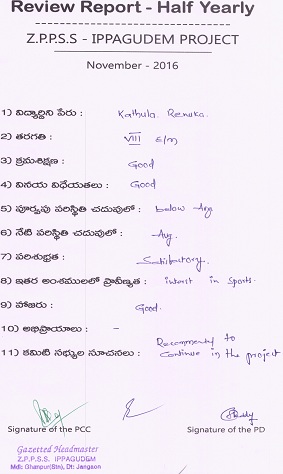 Review Report - Half Yearly
Z.P.P.S.S - IPPAGUDEM PROJECT
November - 2016
1) విద్యార్థిని పేరు : Kathula Renuka.
2) తరగతి : VIII E/M
3) క్రమశిక్షణ : Good
4) వినయ విధేయతలు : Good
5) పూర్వపు పరిస్థితి చదువులో : below Avg
6) నేటి పరిస్థితి చదువులో : Avg.
7) పరిశుభ్రత : Satisfactory.
8) ఇతర అంశములలో ప్రావీణ్యత : intrest in sports.
9) హాజరు : Good.
10) అభిప్రాయాలు : -
11) కమిటీ సభ్యుల సూచనలు : Recommenty to
Continue in the project
Signature of the PCC Signature of the PD
Gazetted Headmaster
Z.P.P.S.S. IPPAGUDEM
Mdl: Ghanpur(Stn), Dt: Jangaon